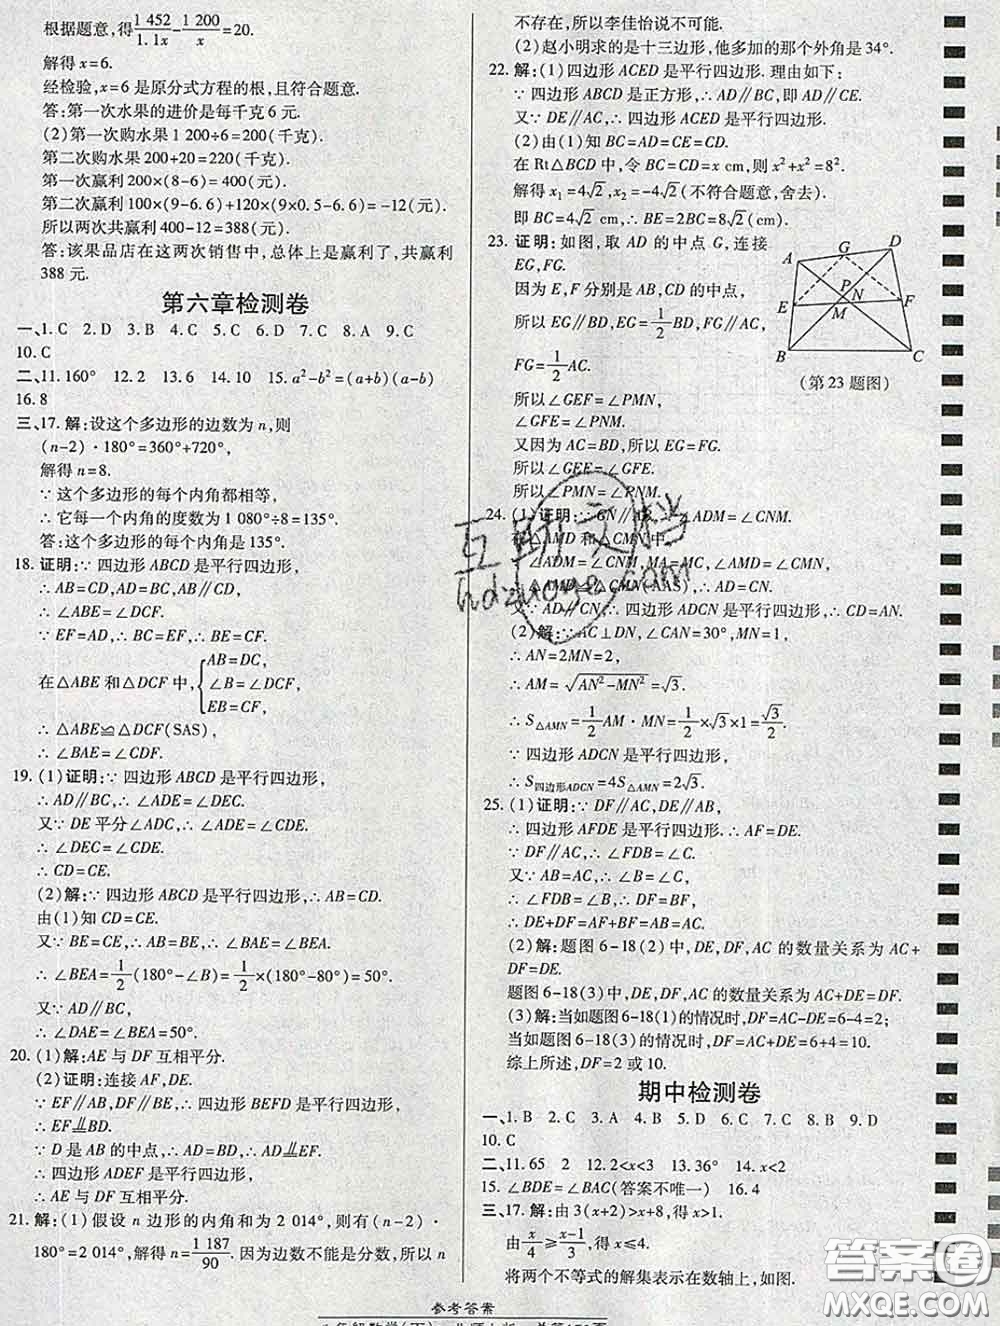 根据题意,得1 452/1.1x-1 200/x=20.
解得x=6.
经检验,x=6是原分式方程的根,且符合题意.
答:第一次水果的进价是每千克6元.
(2)第一次购水果1 200÷6=200(千克).
第二次购水果200+20=220(千克).
第一次赢利200×(8-6)=400(元).
第二次赢利100×(9-6.6)+120×(9×0.5-6.6)=-12(元).
所以两次共赢利400-12=388(元).
答:该果品店在这两次销售中,总体上是赢利了,共赢利
388元.
第六章检测卷
一、1.C 2.D 3.B 4.C 5.C 6.D 7.C 8.A 9.C
10.C
二、11.160° 12.2 13.6 14.10 15.a²-b²=(a+b)(a-b)
16.8
三、17.解:设这个多边形的边数为n,则
(n-2)·180°=360°+720°,
解得n=8.
∵这个多边形的每个内角都相等,
∴它每一个内角的度数为1 080°÷8=135°.
答:这个多边形的每个内角是135°.
18.证明:∵四边形ABCD是平行四边形,
∴AB=CD,AD=BC,AB∥CD,
∴∠ABE=∠DCF.
∵EF=AD,∴BC=EF,∴BE=CF.
在△ABE和△DCF中,{AB=DC,
∠B=∠DCF,
EB=CF,
∴△ABE≌△DCF(SAS),
∴∠BAE=∠CDF.
19.(1)证明:∵四边形ABCD是平行四边形,
∴AD∥BC,∴∠ADE=∠DEC.
又∵DE平分∠ADC,∴∠ADE=∠CDE.
∴∠DEC=∠CDE.
∴CD=CE.
(2)解:∵四边形ABCD是平行四边形,∴AB=CD.
由(1)知CD=CE.
又∵BE=CE,∴AB=BE,∴∠BAE=∠BEA.
∴∠BEA=1/2(180°-∠B)=1/2×(180°-80°)=50°.
又∵AD∥BC,
∴∠DAE=∠BEA=50°.
20.(1)解:AE与DF互相平分.
(2)证明:连接AF,DE.
∵EF∥AB,DF∥BC,∴四边形BEFD是平行四边形,
∴EF⫫BD.
∵D是AB的中点,∴AD=BD,∴AD⫫EF.
∴四边形ADEF是平行四边形,
∴AE与DF互相平分.
21.解:(1)假设n边形的内角和为2 014°,则有(n-2)·
180°=2 014°,解得n=1 187/90.因为边数不能是分数,所以n
不存在,所以李佳怡说不可能.
(2)赵小明求的是十三边形,他多加的那个外角是34°.
22.解:(1)四边形ACED是平行四边形.理由如下:
∵四边形ABCD是正方形,∴AD∥BC,即AD∥CE.
又∵DE∥AC,∴四边形ACED是平行四边形.
(2)由(1)知BC=AD=CE=CD.
在Rt△BCD中,令BC=CD=x cm,则x²+x²=8².
解得x₁=4√2,x₂=-4√2(不符合题意,舍去).
即BC=4√2 cm,∴BE=2BC=8√2(cm).
23.证明:如图,取AD的中点G,连接
EG,FG.
因为E,F分别是AB,CD的中点,
所以EG∥BD,EG=1/2BD,FG∥AC,
FG=1/2AC.
所以∠GEF=∠PMN,
∠GFE=∠PNM.
又因为AC=BD,所以EG=FG.
所以∠GEE=∠GFE.
所以∠PMN=∠PNM.
A G D E P N F M B C
(第23题图)
24.(1)证明:∵CN∥AB,∴∠ADM=∠CNM.
在△AMD和△CMN中,∵
∠ADM=∠CNM,MA=MC,∠AMD=∠CMN,
∴△AMD≌△CMN(AAS),∴AD=CN.
又∵AD∥CN,∴四边形ADCN是平行四边形,∴CD=AN.
(2)解:∵AC⊥DN,∠CAN=30°,MN=1,
∴AN=2MN=2,
∴AM=√(AN²-MN²)=√3.
∴S△AMN=1/2AM·MN=1/2×√3×1=√3/2.
∵四边形ADCN是平行四边形,
∴S四边形ADCN=4S△AMN=2√3.
25.(1)证明:∵DF∥AC,DE∥AB,
∴四边形AFDE是平行四边形.∴AF=DE.
∵DF∥AC,∴∠FDB=∠C.
又∵AB=AC,∴∠B=∠C,
∴∠FDB=∠B,∴DF=BF,
∴DE+DF=AF+BF=AB=AC.
(2)解:题图6-18(2)中,DE,DF,AC的数量关系为AC+
DF=DE.
题图6-18(3)中,DE,DF,AC的数量关系为AC+DE=DF.
(3)解:当如题图6-18(1)的情况时,DF=AC-DE=6-4=2;
当如题图6-18(3)的情况时,DF=AC+DE=6+4=10.
综上所述,DF=2或10.
期中检测卷
一、1.B 2.C 3.A 4.B 5.D 6.D 7.C 8.B 9.D
10.C
二、11.65 2 12.2<x<3 13.36° 14.x<2
15.∠BDE=∠BAC(答案不唯一) 16.4
三、17.解:由3(x+2)>x+8,得x>1.
由x/4≥(x-1)/3,得x≤4.
将两个不等式的解集表示在数轴上,如图.
参考答案
互助文档
hdzuoye.com
答案圈
MXQE.COM